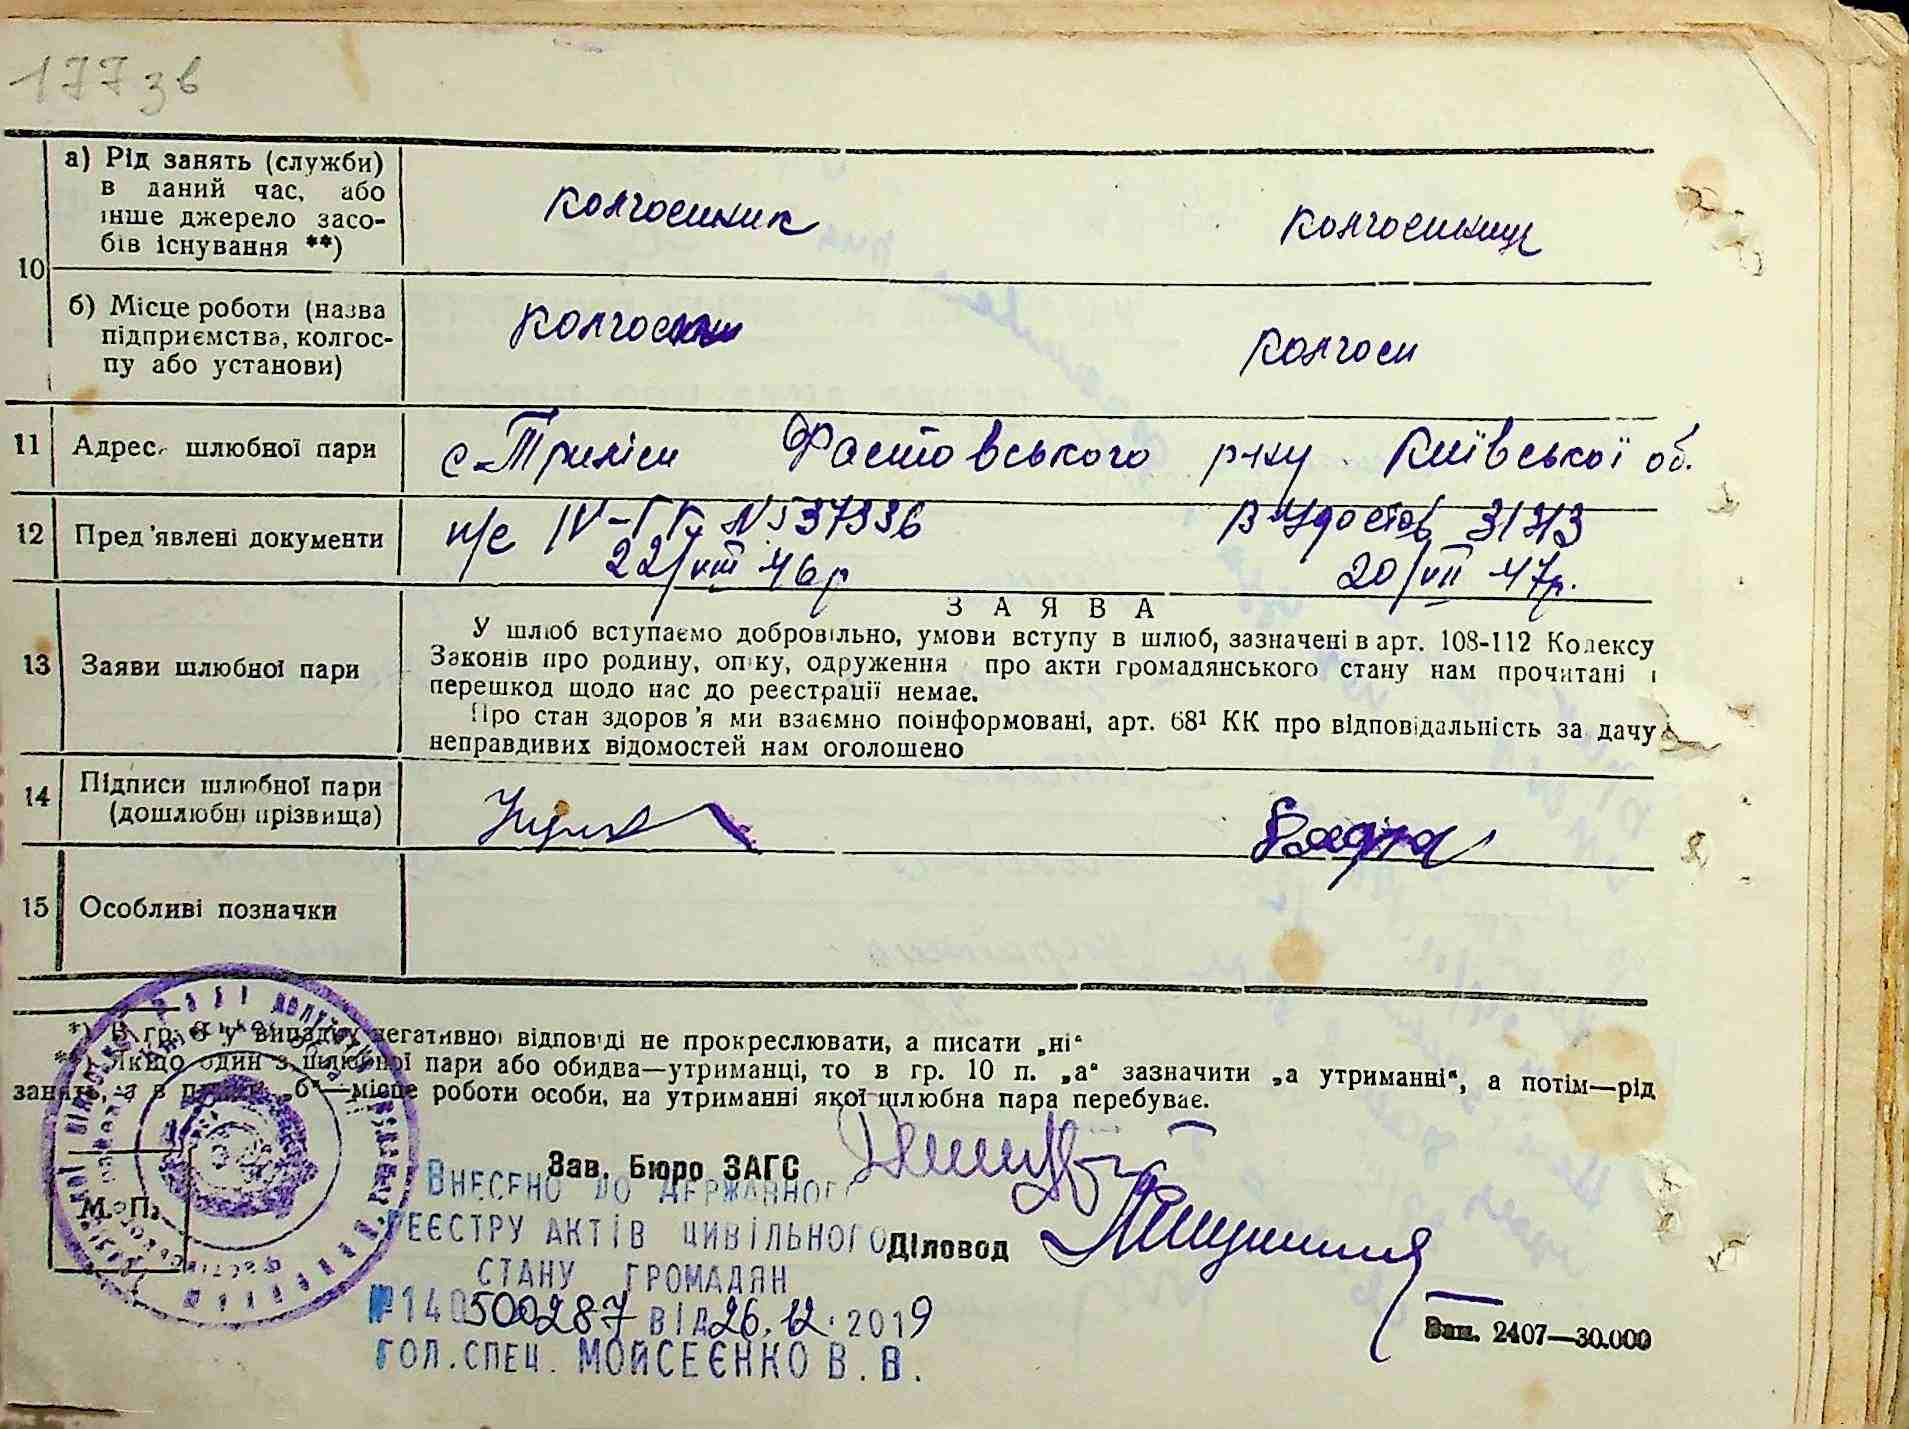 177 зв
10
а) Рід занять (служби)
в даний час, або
інше джерело засо-
бів існування **)
колгоспник
колгоспниця
б) Місце роботи (назва
підприємства, колгос-
пу або установи)
колгосп
колгосп
11 Адреса шлюбної пари с. Триліси Фастовського р-ну Київської об.
12 Пред'явлені документи п/с IV-ГГ № 537336 В Удостов 31313
22/VIII 46р 20/VII 47р.
ЗАЯВА
13 Заяви шлюбної пари
У шлюб вступаємо добровільно, умови вступу в шлюб, зазначені в арт. 108-112 Кодексу
Законів про родину, опіку, одруження і про акти громадянського стану нам прочитані і
перешкод щодо нас до реєстрації немає.
Про стан здоров'я ми взаємно поінформовані, арт. 68¹ КК про відповідальність за дачу
неправдивих відомостей нам оголошено
14 Підписи шлюбної пари
(дошлюбні прізвища)
15 Особливі позначки
*) В гр. 8 у випадку негативної відповіді не прокреслювати, а писати „ні“
**) Якщо один з шлюбної пари або обидва—утриманці, то в гр. 10 п. „а“ зазначити „а утриманні“, а потім—рід
занять, а в пункті „б“—місце роботи особи, на утриманні якої шлюбна пара перебуває.
Зав. Бюро ЗАГС
М. П.
Діловод
ВНЕСЕНО ДО ДЕРЖАВНОГО
РЕЄСТРУ АКТІВ ЦИВІЛЬНОГО
СТАНУ ГРОМАДЯН
№ 140500287 ВІД 26.12.2019
ГОЛ.СПЕЦ. МОЙСЕЄНКО В.В.
Зам. 2407—30.000